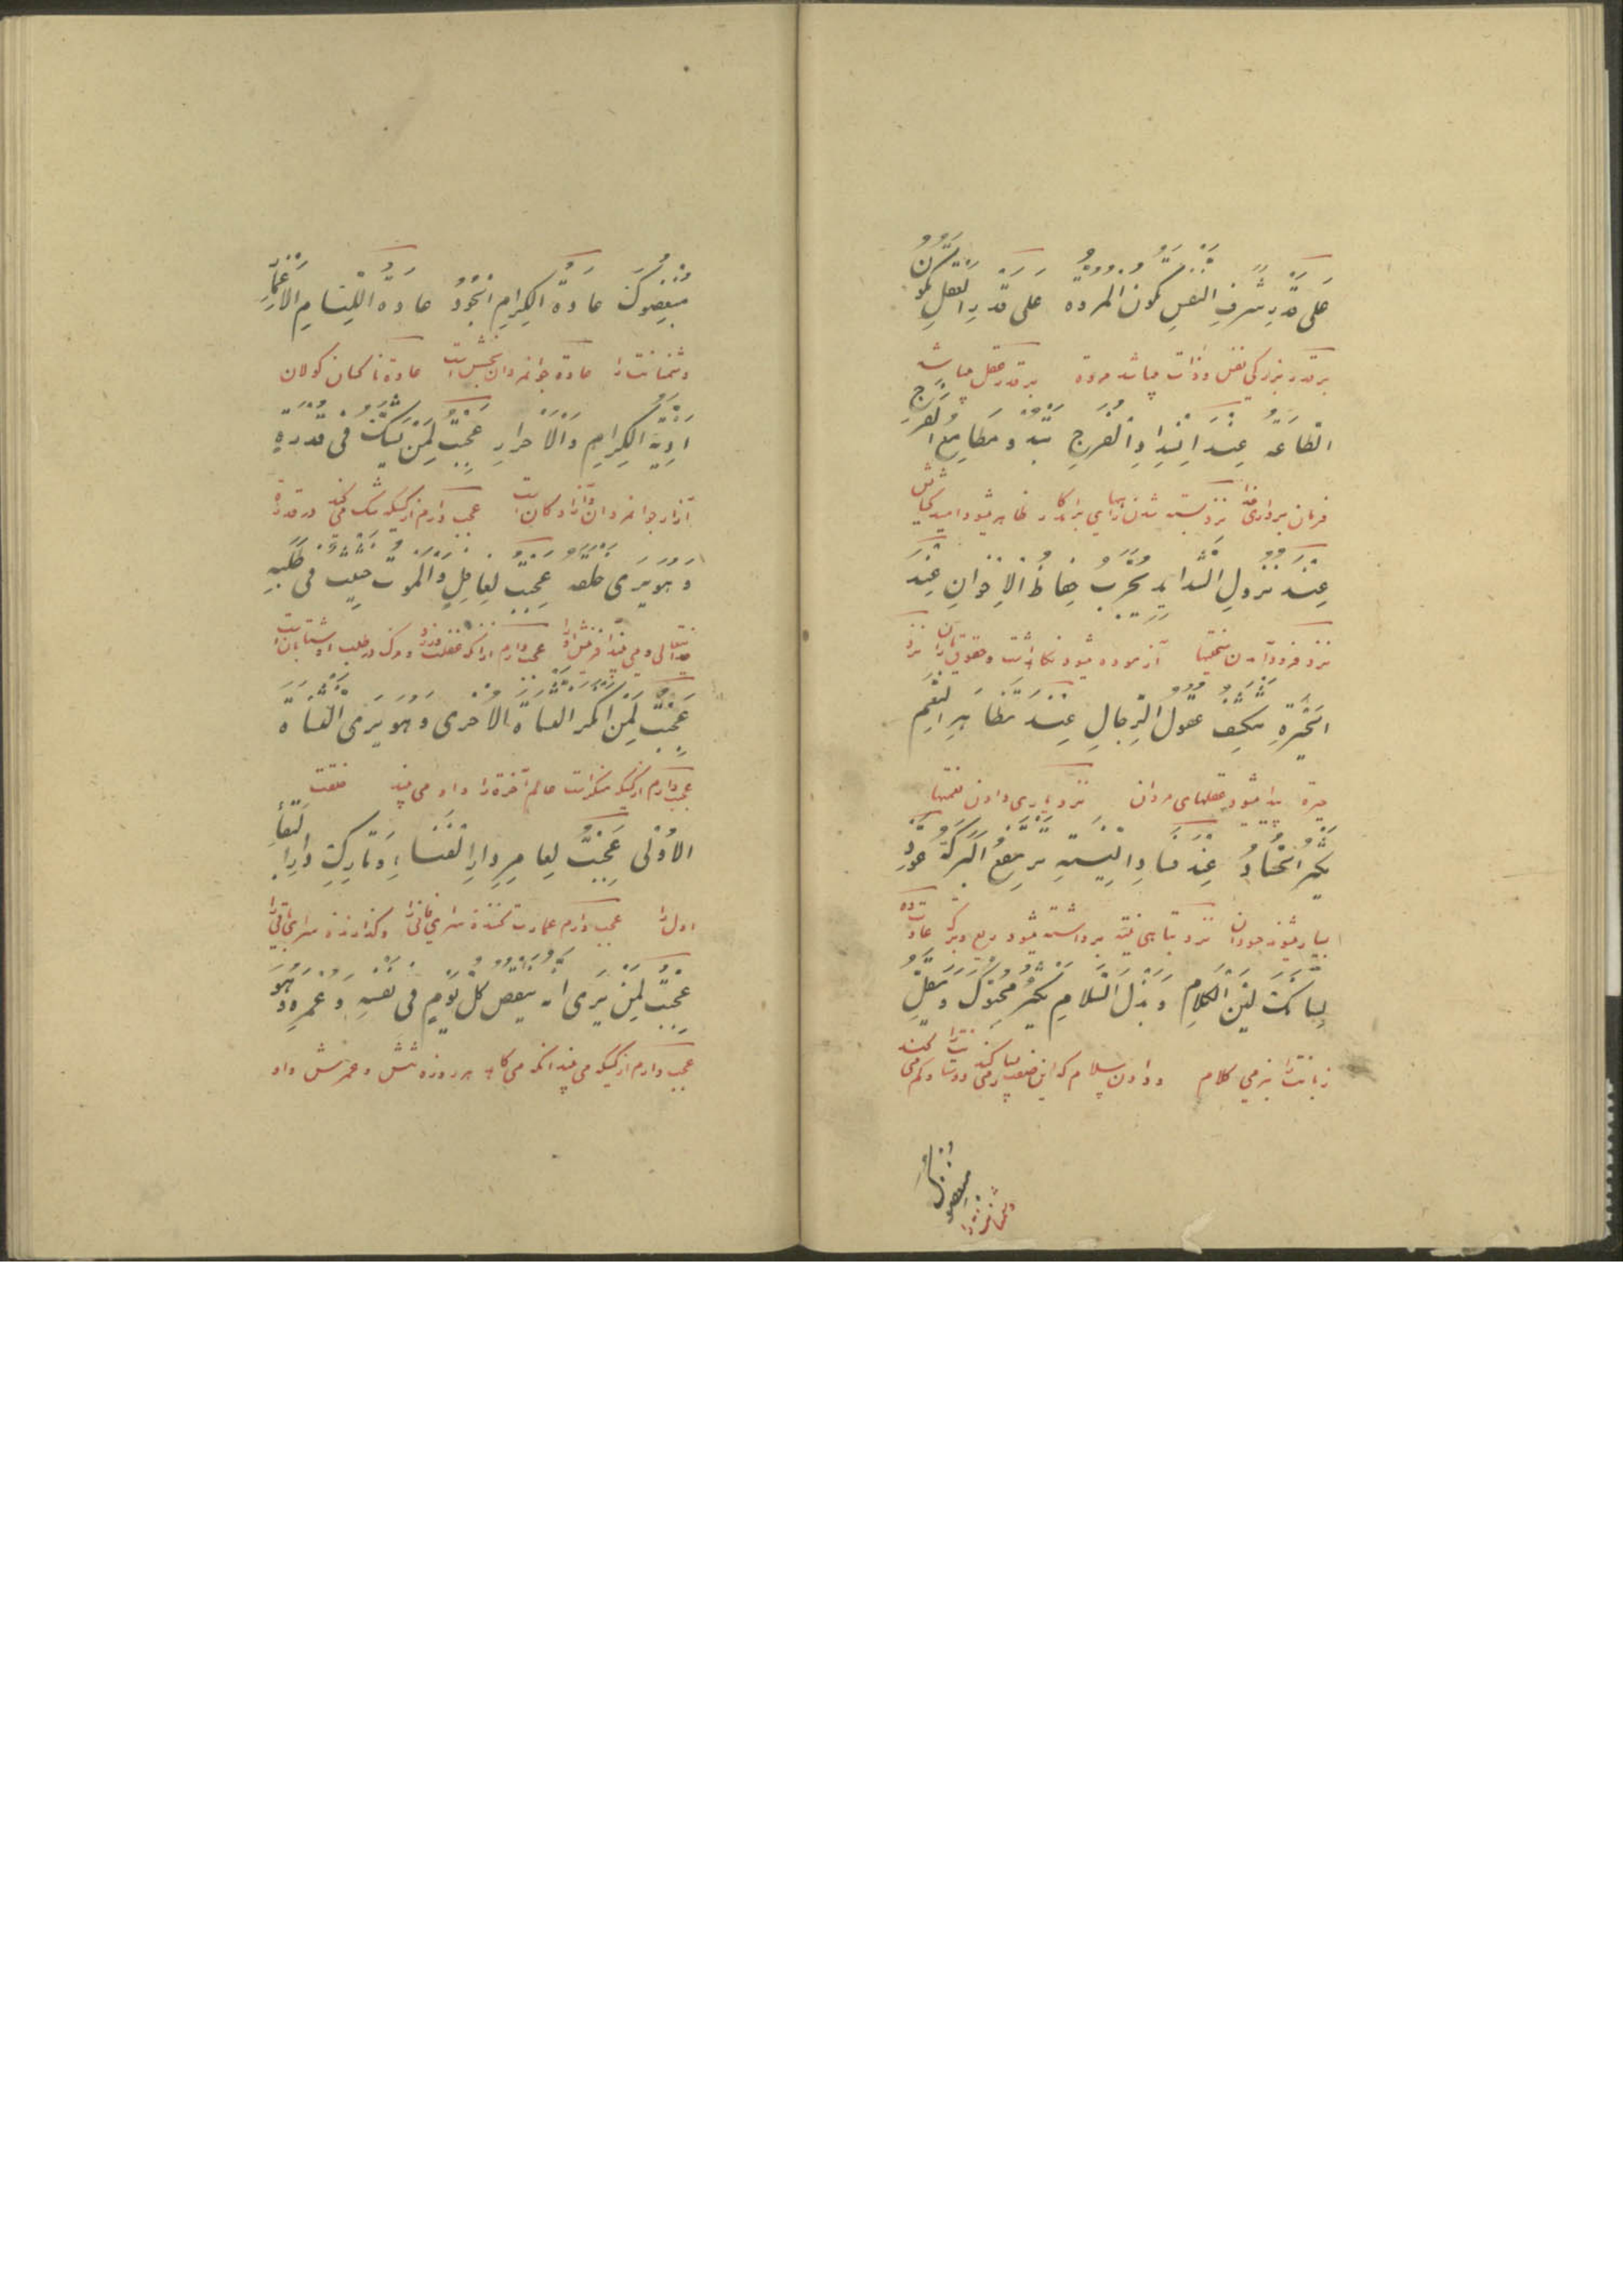 عَلى قَدْرِ شَرَفِ النَّفْسِ تَكُونُ المُرُوَّةُ عَلى قَدْرِ العَقْلِ تَكُونُ
بر قدر بزرگی نفس و ذات میباشد مروة بر قدر عقل میباشد
الطّاعَةُ عِنْدَ انْسِدادِ الْفُرَجِ تَبْدُو مَطَالِعُ الْفَرَجِ
فرمان برداری نزد بسته شدن ظاهر میشود امید
عِنْدَ نُزُولِ الشَّدائِدِ يُجَرَّبُ حِفَاظُ الْاِخْوانِ عِنْدَ
نزد فرود آمدن سختیها آزموده میشود نگاهداشت نزد
الحَيْرَةِ تَنْكَشِفُ عُقُولُ الرِّجالِ عِنْدَ تَظَاهُرِ النِّعَمِ
حیرة پیدا میشود عقلهای مردان نزد یاری دادن نعمتها
يَكْثُرُ الحُسّادُ عِنْدَ فَسَادِ النِّيَّةِ تَرْتَفِعُ البَرَكَةُ عَوِّدْ
بسیار میشوند حسودان نزد تباهی نیة برداشته میشود عادت ده
لِسَانَكَ لِيْنَ الْكَلامِ وَ بَذْلَ السَّلامِ يَكْثُرْ مُحِبُّوكَ وَ يَقِلَّ
زبانترا بنرمی کلام و دادن سلام
مبغضوک
دشمنانترا
مُبْغِضُوكَ عَادَةُ الْكِرامِ الجُوْدُ عَادَةُ اللِّئَامِ
دشمنانت را عادة جوانمردان بخشش است عادة ناکسان
اَذِيَّةُ الْكِرامِ وَالْاَحْرارِ عَجِبْتُ لِمَنْ يَشُكُّ فِى قُدْرَةِ
آزار جوانمردان و آزادگان است عجب دارم از کسیکه شک میکند در قدرة
وَ هُوَ يَرَى خَلْقَهُ عَجِبْتُ لِغَافِلٍ وَالْمَوْتُ حَثِيثٌ فى طَلَبِهِ
عجب دارم
عَجِبْتُ لِمَنْ اَنْكَرَ النَّشْاَةَ الْاُخْرى وَ هُوَ يَرَى النَّشْاَةَ
عجب دارم از کسیکه منکر است عالم آخرة را و او می بیند خلقت
الْاُوْلى عَجِبْتُ لِعامِرِ دارِ الْفَنَاءِ وَ تَارِكِ دارِ البَقَاءِ
اول را عجب دارم عمارت کننده سرای فانی را و گذارنده سرای باقی را
عَجِبْتُ لِمَنْ يَرَى اَنَّهُ يُنْقَصُ كُلَّ يَوْمٍ فِى نَفْسِهِ وَ عُمْرِهِ وَ هُوَ
عجب دارم از کسیکه می بیند آنکه می کاهد هر روز نفسش و عمرش و او